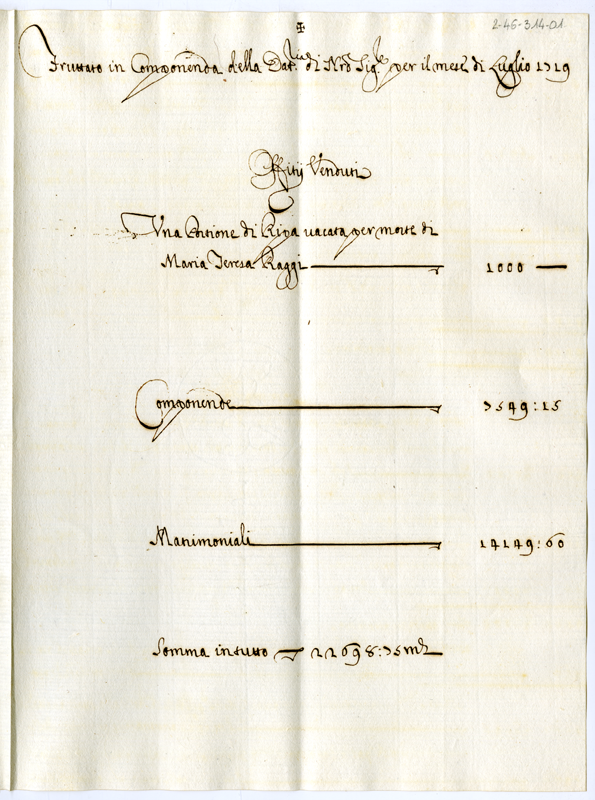 2-46-314-01
✠
Fruttato in Componenda della Dat.ria di Nro Sig.re per il mese di Luglio 1719
Offitij Venduti
Una Portione di Ripa vacata per morte di
Maria Teresa Raggi — 1000 —
Componende — 7549:15
Matrimoniali — 14149:60
Somma in tutto — 22698:75 mta